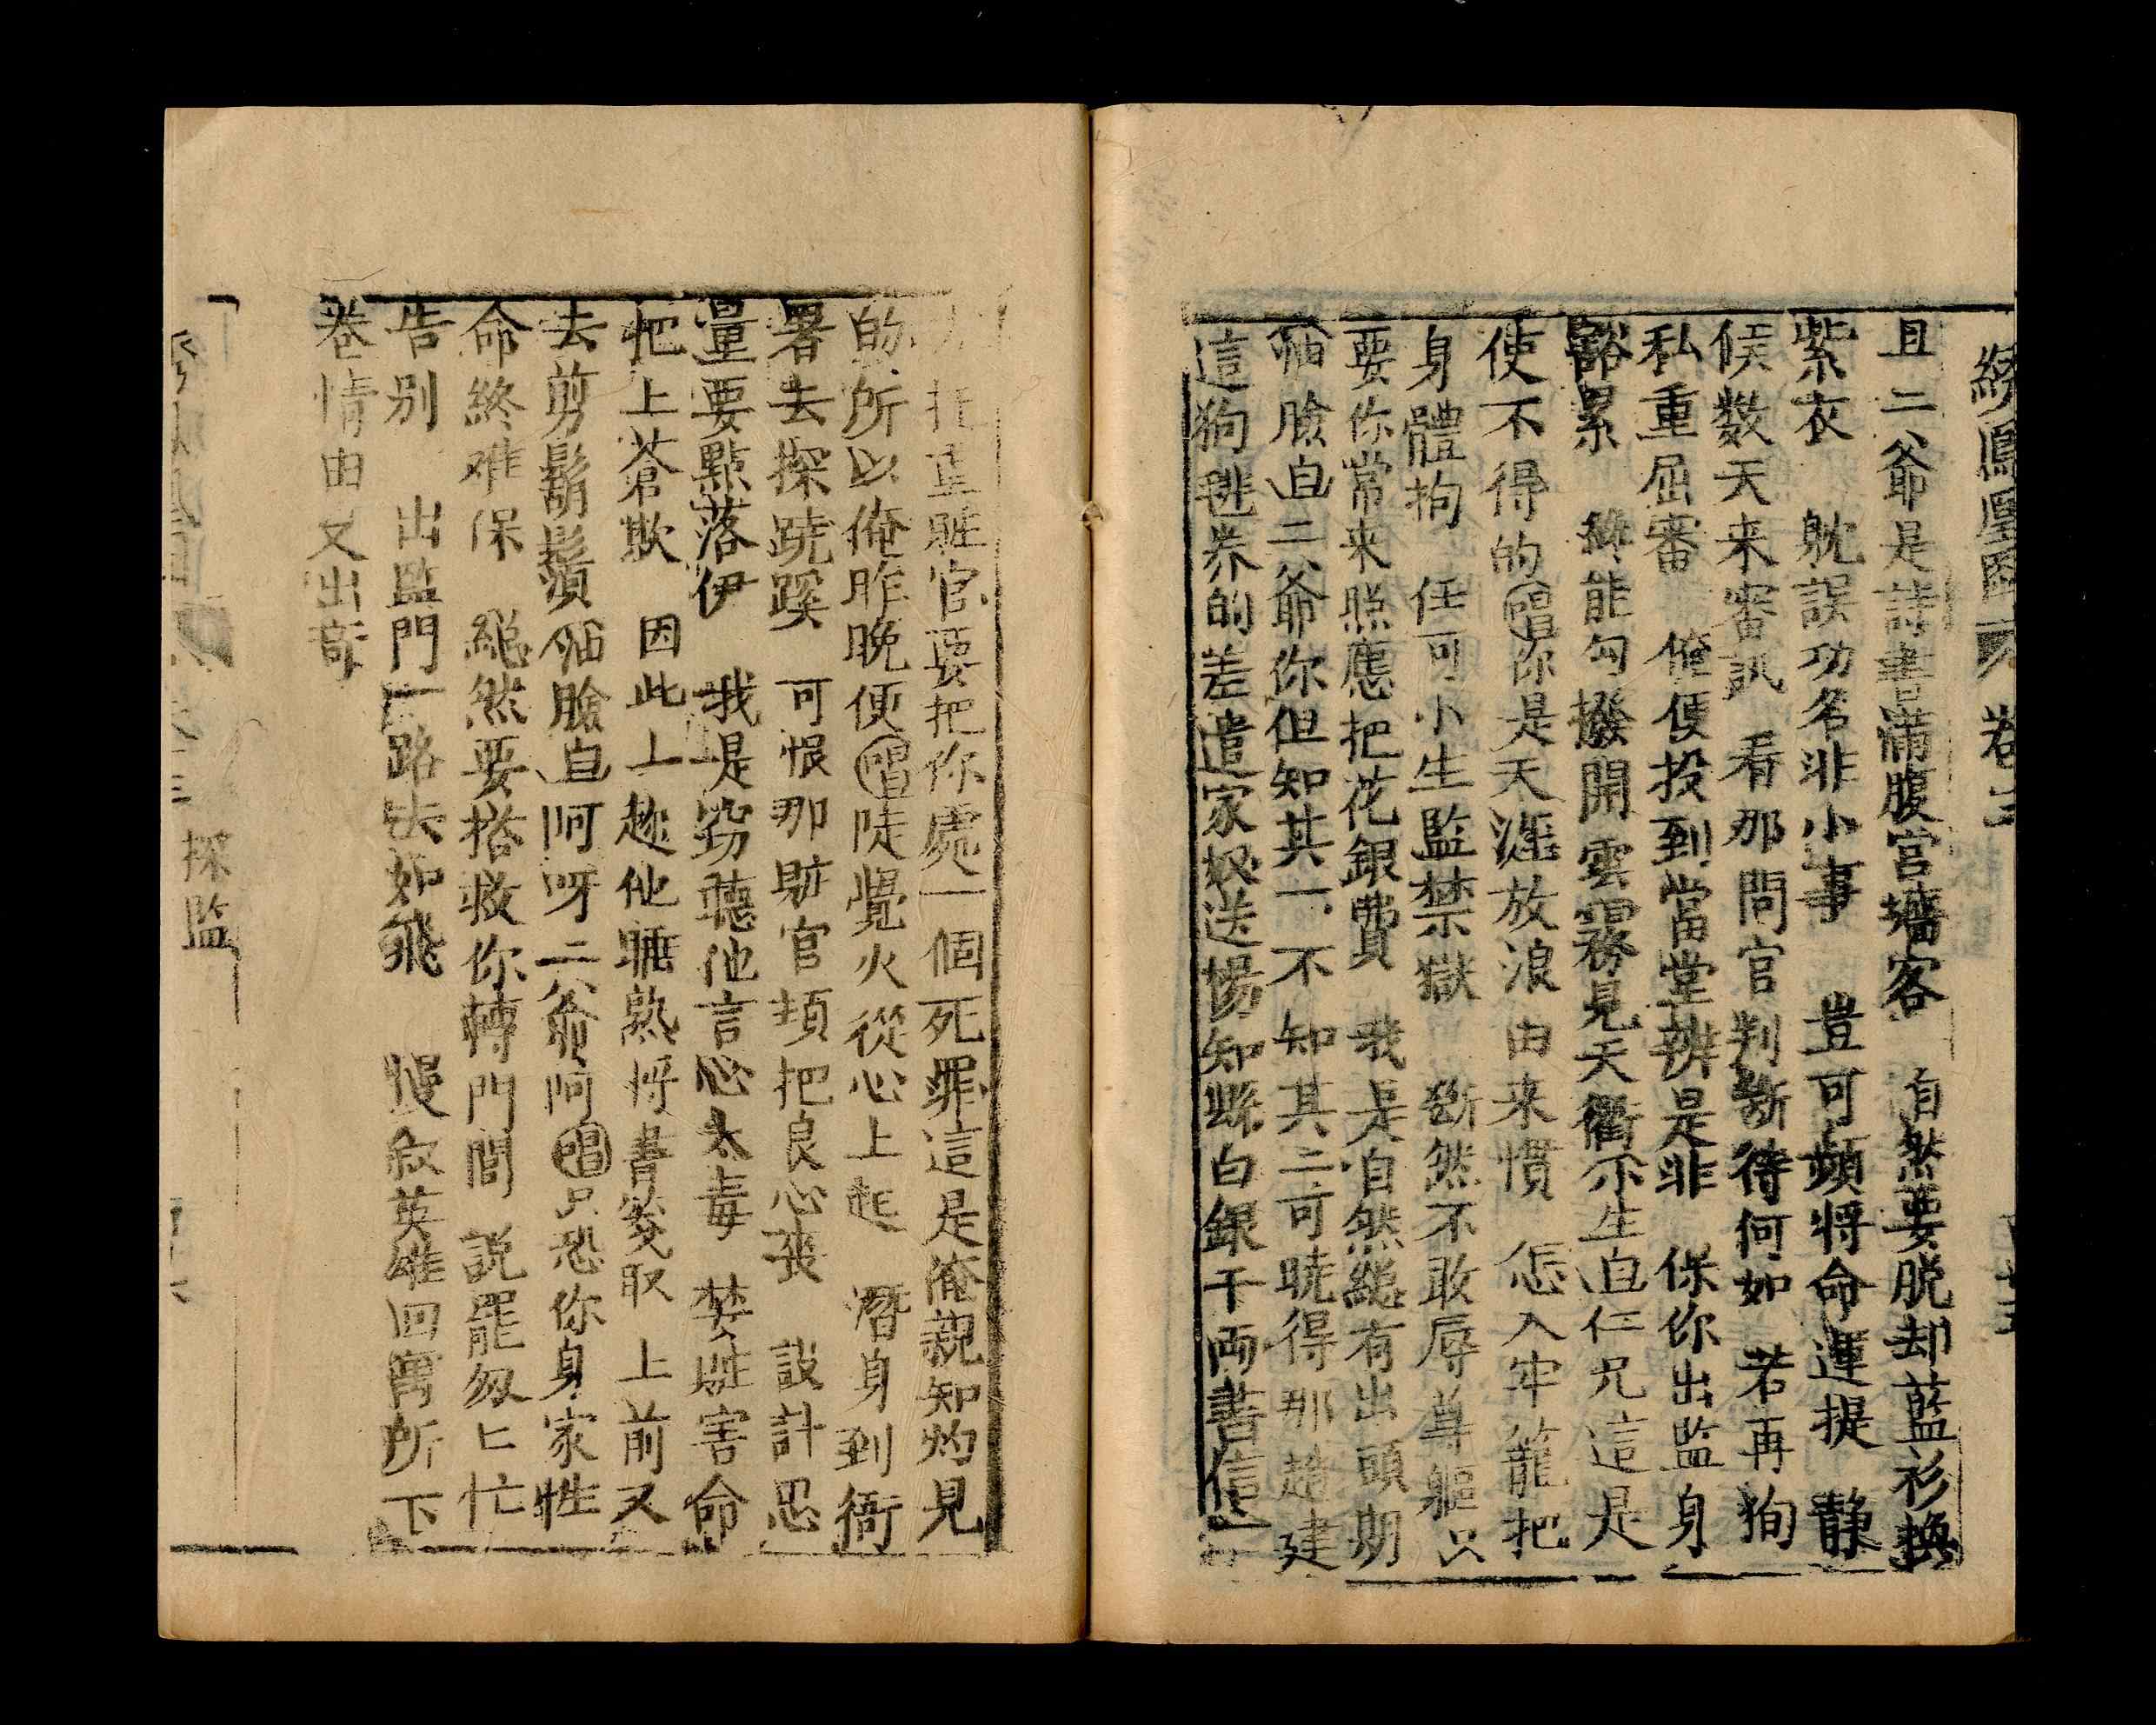 繡鳳凰圖 卷三
且二爺是詩書滿腹宮墻客 自然要脫却藍衫換
紫衣 躭誤功名非小事 豈可頻將命運提 靜
候数天来審訊 看那問官判斷待何如 若再狥
私重屈審 俺便投到當堂辨是非 保你出監身
豁累 終能勾撥開雲霧見天衢 小生白仁兄這是
使不得的唱你是天涯放浪由来慣 怎入牢籠把
身體拘 任可小生監禁獄 斷然不敢辱尊軀只
要你常来照應把花銀費 我是自然總有出頭期
油臉白二爺你但知其一不知其二可曉得那趙建
這狗毴养的差遣家奴送楊知縣白銀千両書信
托這賍官要把你處一個死罪這是俺親知灼見
的所以俺昨晚便唱陡覺火從心上起 潛身到衙
署去探蹺蹊 可恨那賍官頃把良心丧 設計思
量要點落伊 我是窃聽他言心太毒 焚賍害命
把上蒼欺 因此上趂他睡熟將書箋取 上前又
去剪鬍鬚油臉白阿呀二爺阿唱只恐你身家性
命終难保 總然要搭救你轉門閭 説罷匆匕忙
告别 出監門一路去如飛 慢叙英雄回寓所下
卷情由又出竒
卷三 探監